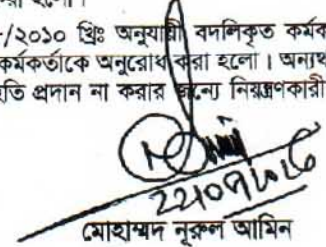 /২০১০ খ্রিঃ অনুযায়ী বদলিকৃত কর্মক
কর্মকর্তাকে অনুরোধ করা হলো। অন্যথ
তি প্রদান না করার জন্যে নিয়ন্ত্রণকারী
মোহাম্মদ নূরুল আমিন